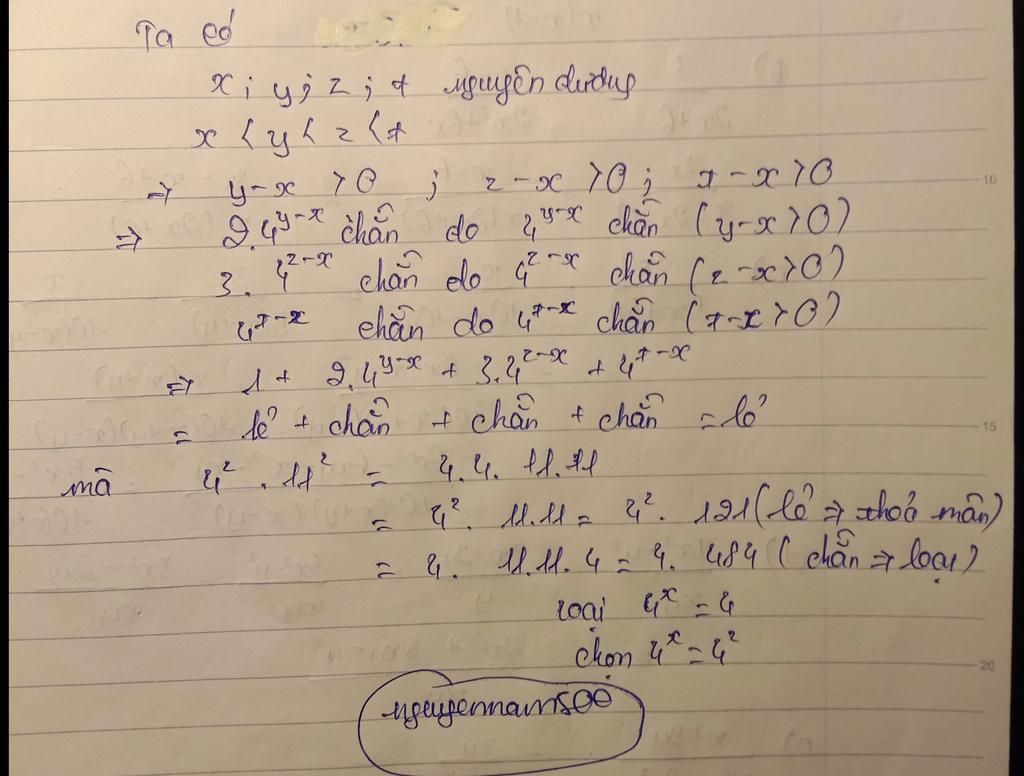 Ta có
x; y; z; t nguyên dương
x < y < z < t
⇒ y-x > 0 ; z-x > 0; t-x > 0
⇒ 2.4^{y-x} chẵn do 4^{y-x} chẵn (y-x > 0)
3. 4^{z-x} chẵn do 4^{z-x} chẵn (z-x > 0)
4^{t-x} chẵn do 4^{t-x} chẵn (t-x > 0)
⇒ 1 + 2.4^{y-x} + 3.4^{z-x} + 4^{t-x}
= lẻ + chẵn + chẵn + chẵn = lẻ
mà 4² . 11² = 4.4. 11.11
= 4² . 11.11 = 4² . 121 (lẻ ⇒ thoả mãn)
= 4. 11.11. 4 = 4. 484 (chẵn ⇒ loại)
loại 4^x = 4
chọn 4^x = 4²